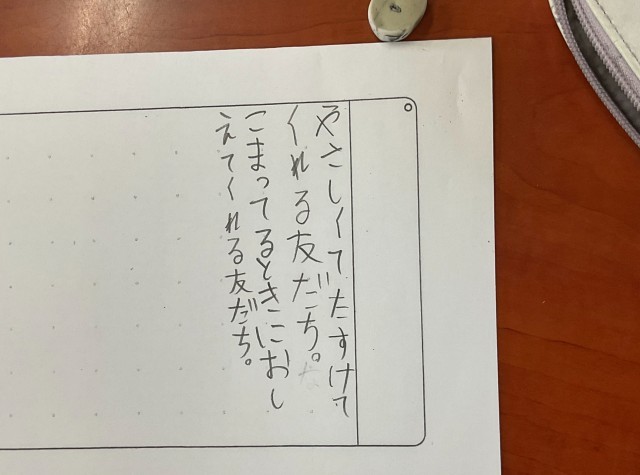 やさしくてたすけて
くれる友だち。
こまってるときにおし
えてくれる友だち。